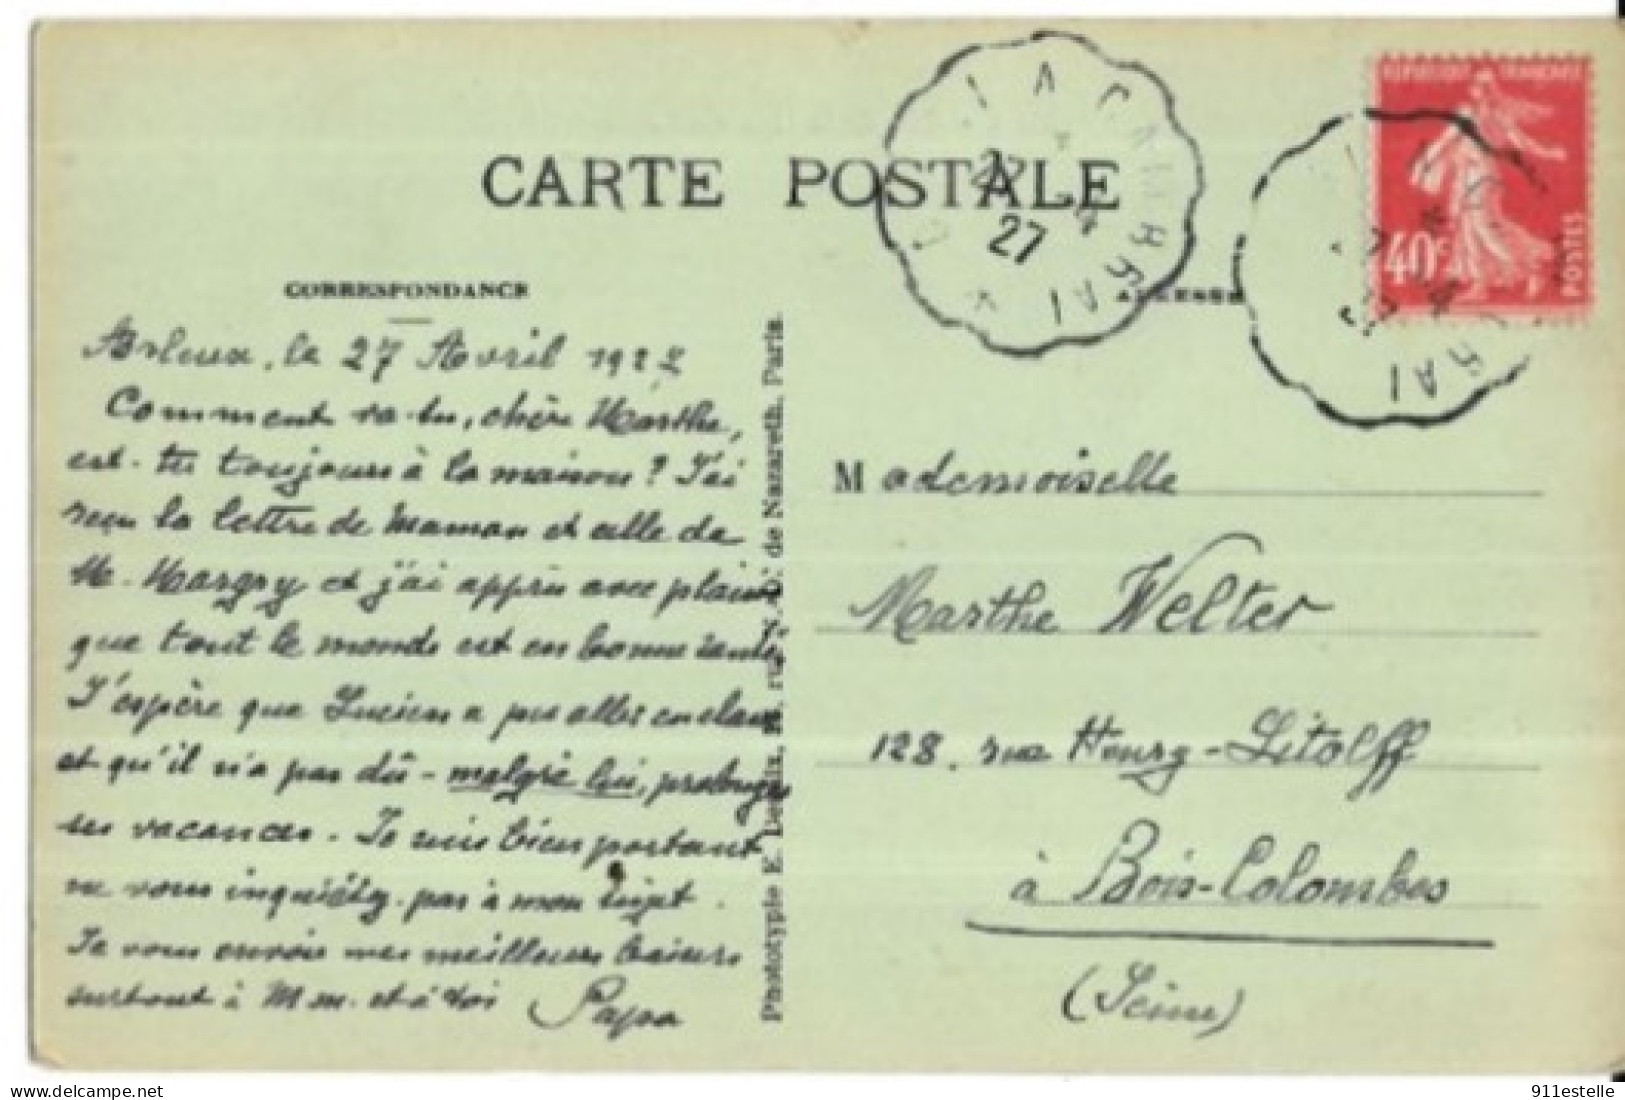 CARTE POSTALE
CORRESPONDANCE
Arleux, le 27 Avril 1927
Comment va-tu, chère Marthe,
est-tu toujours à la maison ? J'ai
reçu la lettre de Maman et celle de
M. Margry et j'ai appris avec plaisir
que tout le monde est en bonne santé.
J'espère que Lucien a pu aller en classe
et qu'il n'a pas dû - malgré lui, prolonger
ses vacances. Je suis bien portant
ne vous inquiétez pas à mon sujet.
Je vous envoie mes meilleurs baisers
surtout à Mm. et à toi Papa
Phototypie E. Deleix, rue de Nazareth, Paris.
ADRESSE
Mademoiselle
Marthe Welter
128, rue Henry-Litolff
à Bois-Colombes
(Seine)
27
REPUBLIQUE FRANÇAISE
40c
POSTES
911estelle